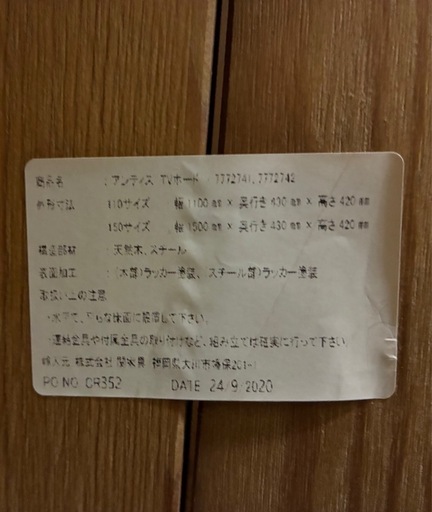 商品名 : アンティス TVボード 7772741,7772742
外形寸法 110サイズ 幅 1100 mm × 奥行き 430 mm × 高さ 420 mm
150サイズ 幅 1500 mm × 奥行き 430 mm × 高さ 420 mm
構造部材 : 天然木、スチール
表面加工 : (木部)ラッカー塗装、スチール部)ラッカー塗装
取扱い上の注意
・水平で、平らな床面に設置して下さい。
・連結金具や付属金具の取り付けなど、組み立ては確実に行って下さい。
輸入元 株式会社 関家具 福岡県大川市幡保201-1
PO NO. OR352 DATE 24/9/2020